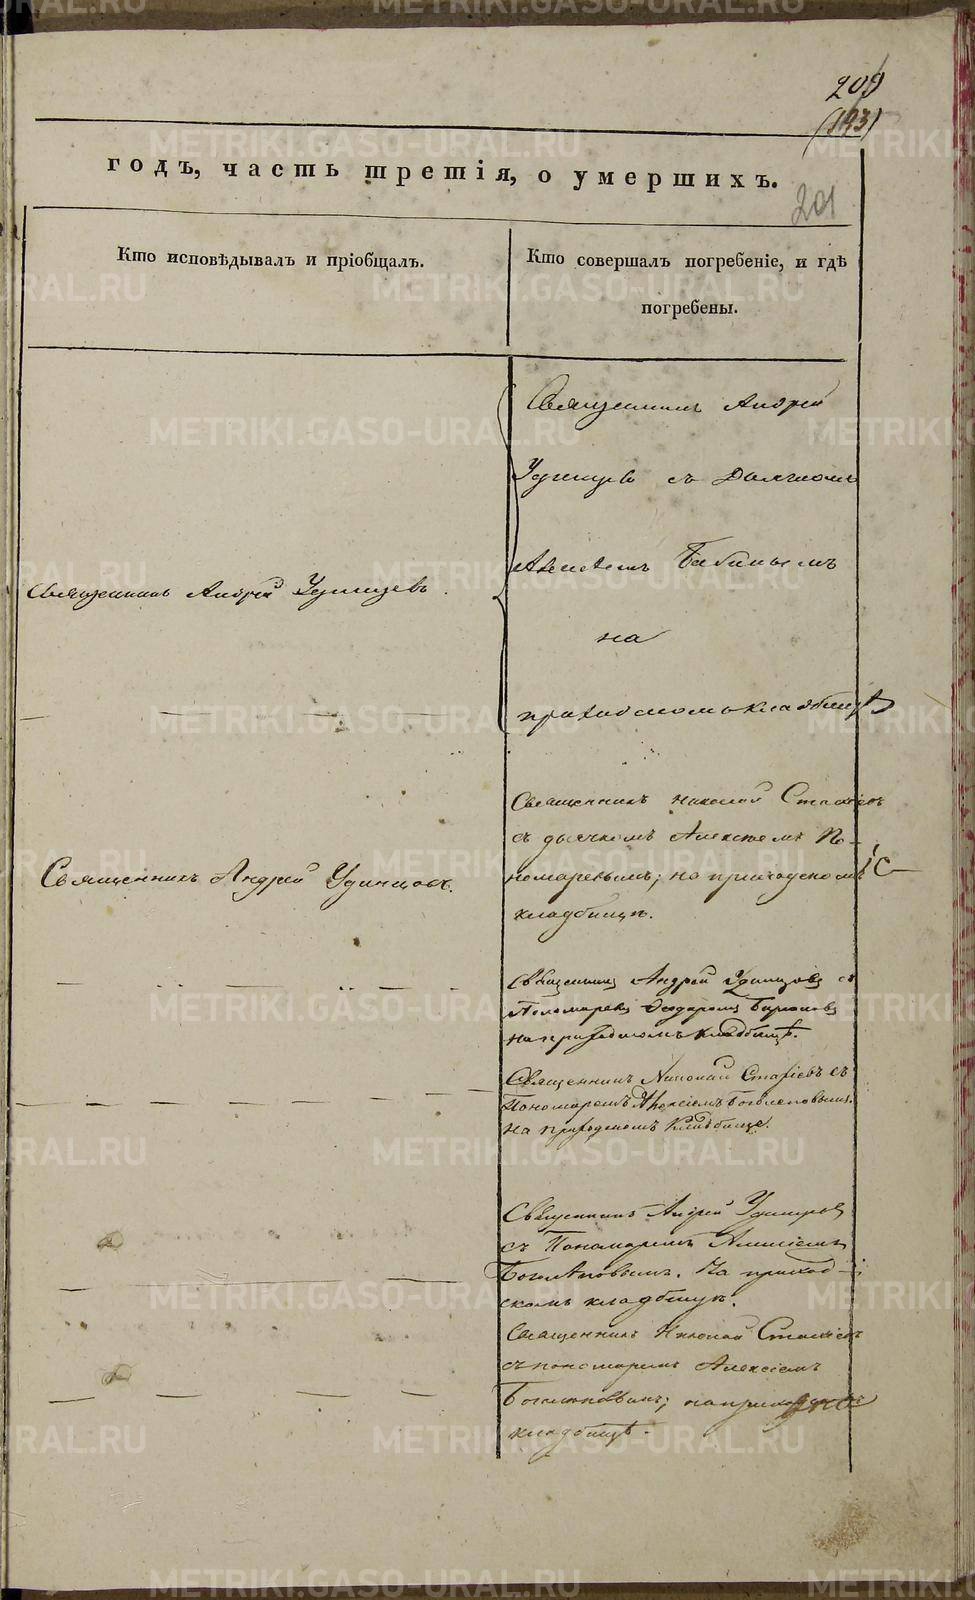 209
(193)
годъ, часть третія, о умершихъ.
201
Кто исповѣдывалъ и пріобщалъ.
Кто совершалъ погребеніе, и гдѣ
погребены.
Священникъ Андрей
Удинцевъ съ Дьячкомъ
Бабинымъ
на
приходскомъ кладбищѣ
Священникъ Андрей Удинцевъ
Священникъ Николай Стахіевъ
съ дьячкомъ Алексѣемъ По-
номаревымъ; на приходскомъ
кладбищѣ.
Священникъ Андрей Удинцовъ.
Священникъ Андрей Удинцовъ съ
Пономаремъ Ѳедоромъ
на приходскомъ кладбищѣ.
Священникъ Николай Стахіевъ съ
Пономаремъ Алексіемъ Боголеповымъ.
на приходскомъ кладбище.
Священникъ Андрей Удинцовъ
съ Пономаремъ Алексіемъ
Боголѣповымъ. На приход-
скомъ кладбищѣ.
Священникъ Николай Стахіевъ
съ пономаремъ Алексіемъ
Боголѣповымъ; на приходскомъ
кладбищѣ.
METRIKI.GASO-URAL.RU